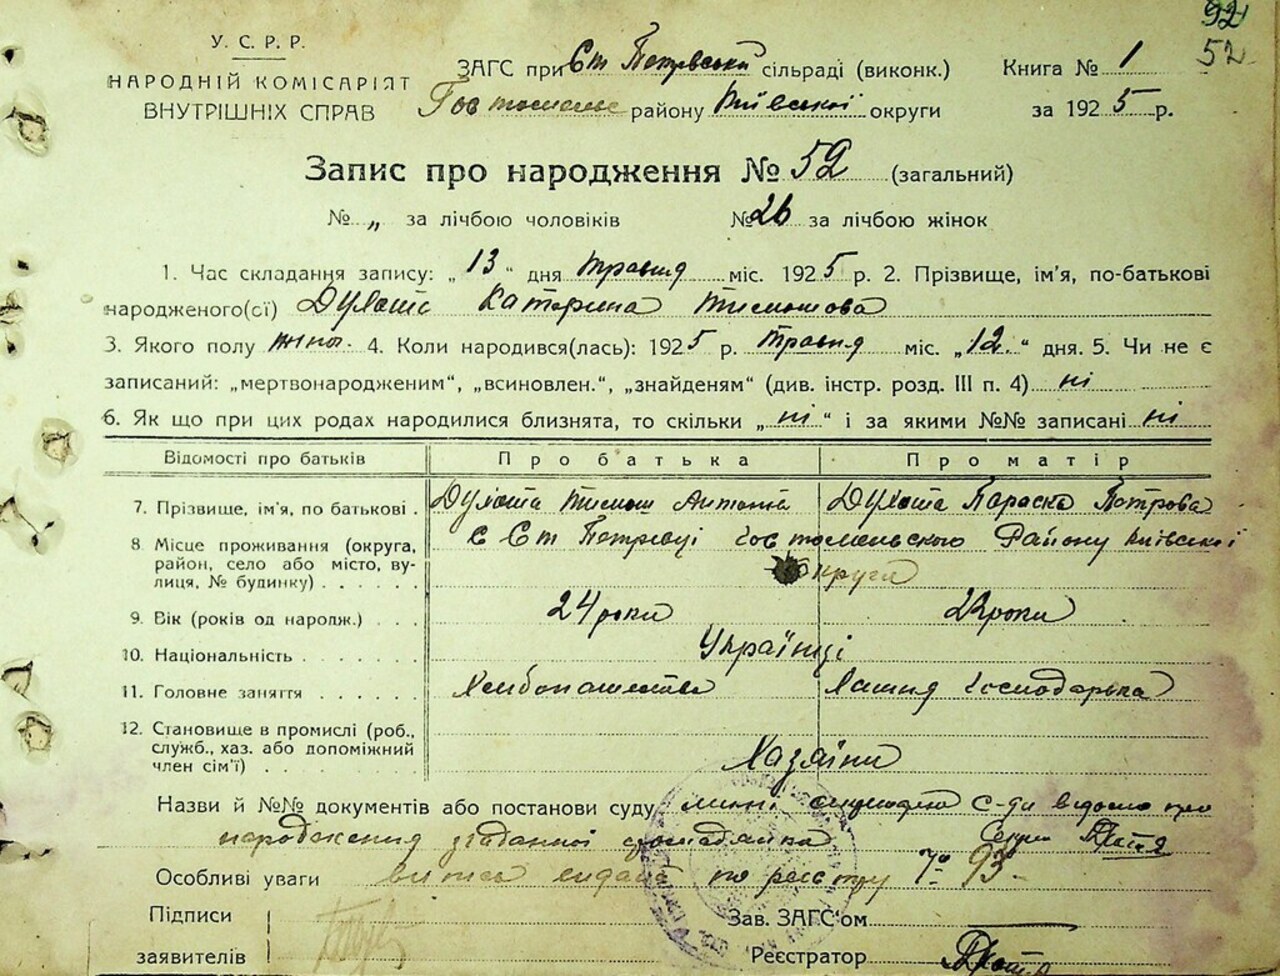 92
52
У. С. Р. Р.
НАРОДНІЙ КОМІСАРІЯТ
ВНУТРІШНІХ СПРАВ
ЗАГС при Ст Петрівській сільраді (виконк.)
Книга № 1
району Київської округи
за 1925 р.
Запис про народження № 52 (загальний)
№ „ за лічбою чоловіків № 26 за лічбою жінок
1. Час складання запису: „13“ дня травня міс. 1925 р. 2. Прізвище, ім'я, по-батькові
народженого(сї) Катерина Тимошова
3. Якого полу жіно. 4. Коли народився(лась): 1925 р. травня міс. „12“ дня. 5. Чи не є
записаний: „мертвонародженим“, „всиновлен.“, „знайденям“ (див. інстр. розд. III п. 4) ні
6. Як що при цих родах народилися близнята, то скільки „ні“ і за якими №№ записані ні
Відомості про батьків Про батька Про матір
7. Прізвище, ім'я, по батькові . Тимош Параска Петрова
8. Місце проживання (округа, с Ст Петрівці Гостомельского Району Київської
район, село або місто, ву- округи
лиця, № будинку) . . . . .
9. Вік (років од народж.) . . . 24 роки 23 роки
10. Національність . . . . . . . Українці
11. Головне заняття . . . . . . Хлібопашество Хатня Господарька
12. Становище в промислі (роб.,
служб., хаз. або допоміжний
член сім'ї) . . . . . . . . . Хазяїни
Назви й №№ документів або постанови суду с-ди відомо про
народження згаданої громадянки
Особливі уваги витяг видано по реєстру № 93.
Підписи
заявителів
Зав. ЗАГС'ом
Реєстратор